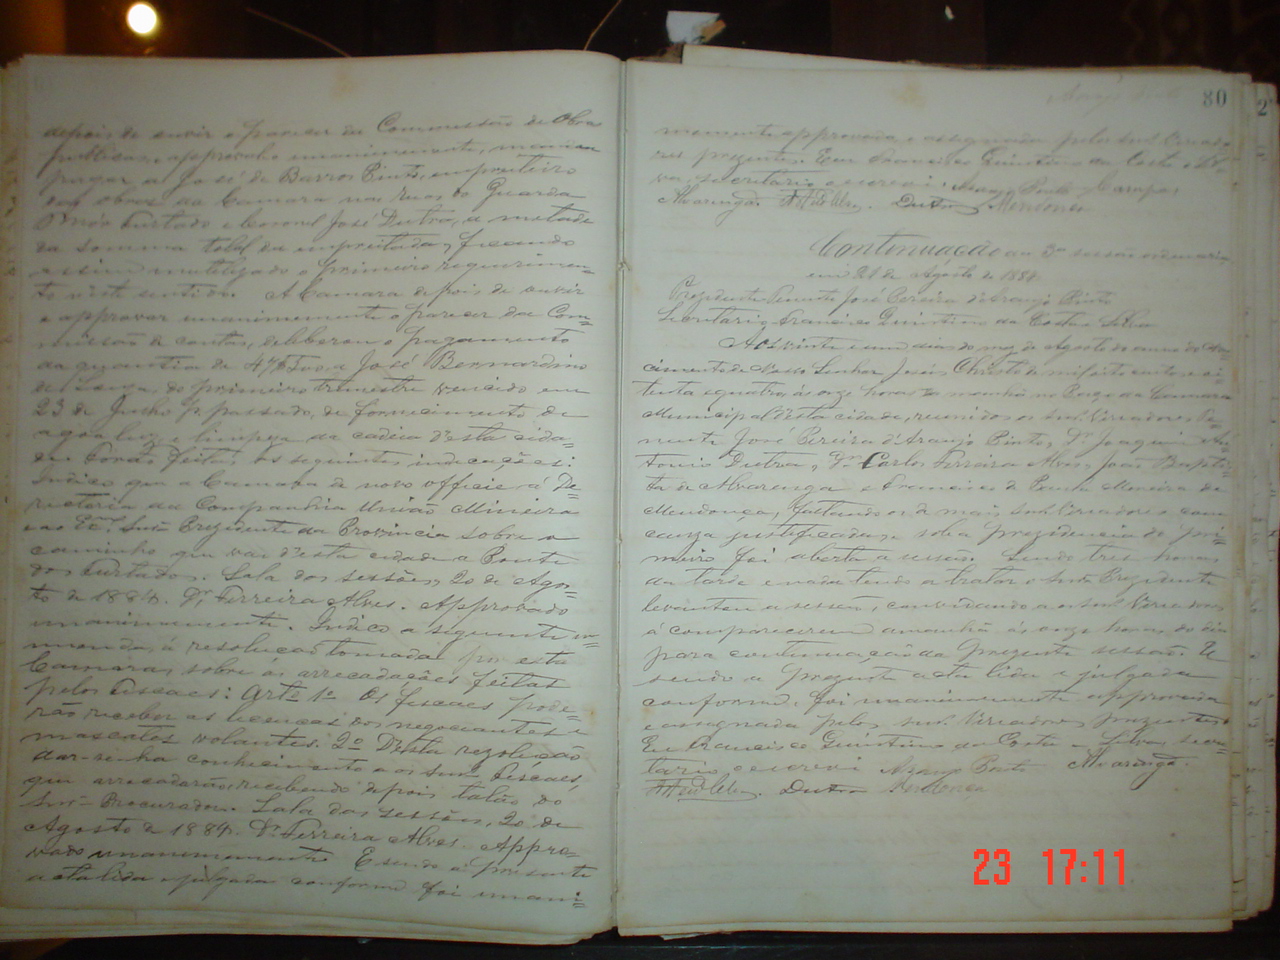 depois de ouvir o parecer da Commissão de Obras
publicas, e approval-o unanimemente, mandou
pagar a José de Barros Pinto, empreiteiro
das obras da Camara nas ruas do Guarda
Mór Furtado e Coronel José Dutra, a metade
da somma total da empreitada, ficando
assim inutilizado o primeiro requerimen=
to n'este sentido. A Camara depois de ouvir
e approvar unanimemente o parecer da Com=
missão de contas, deliberou o pagamento
da quantia de a José Bernardino
do primeiro trimestre vencido em
23 de Junho p. passado, de fornecimento de
agoa luz e limpeza da cadeia d'esta cida=
de. Forão feitas as seguintes indicações:
Indico que a Camara de novo officie á Di=
rectoria da Companhia União Mineira
e ao Exmo Snr. Prezidente da Provincia sobre o
caminho que vai d'esta cidade a Ponte
dos Furtados. Sala das sessões, 20 de Agos=
to de 1884. Dr. Ferreira Alves. Approvado
unanimemente. Indico a seguinte e=
menda, á resolução tomada por esta
Camara, sobre as arrecadações feitas
pelos Fiscaes: Arto 1o Os fiscaes pode=
rão receber as licenças dos negociantes e
mascates volantes. 2o D'esta rezolução
dar-se-ha conhecimento a os Snrs. Fiscaes,
que arrecadarão, recebendo depois talão do
Snr. Procurador. Sala das sessões, 20 de
Agosto de 1884. Dr. Ferreira Alves. Appro=
vado unanimemente. E sendo a presente
acta lida e julgada conforme foi unani=
80
memente approvada e assignada pelos Snrs. Vereado
res prezentes. Eu Francisco Quintino da Costa e Sil=
va, secretario o escrevi. Araujo Pinto Campos
Alvarenga. Dutra Mendonça
Continuação da 3a sessão ordinaria,
em 21 de Agosto de 1884.
Prezidente Tenente José Pereira d'Araujo Pinto
Secretario Francisco Quintino da Costa e Silva
Aos vinte e um dias do mez de Agosto do anno do Nas
cimento de Nosso Senhor Jesus Christo de mil oito centos e oi=
tenta e quatro, ás onze horas da manhã no Paço da Camara
Municipal d'esta cidade, reunidos os Snrs. Vereadores Te=
nente José Pereira d'Araujo Pinto, Dr. Joaquim An=
tonio Dutra, Dr. Carlos Ferreira Alves, João Baptis=
ta de Alvarenga e Francisco de Paula Moreira de
Mendonça, faltando os de mais Snrs. Vereadores com
cauza justificada, e sob a prezidencia do pri=
meiro foi aberta a sessão. Sendo tres horas
da tarde e nada tendo a tratar o Snr. Prezidente
levantou a sessão, convidando a os Snrs. Vereadores
á comparecerem amanhã ás onze horas do dia
para continuação da prezente sessão. E
sendo a prezente acta lida e julgada
conforme, foi unanimemente approvada
e assignada pelos Snrs. Vereadores prezentes.
Eu Francisco Quintino da Costa e Silva, secre=
tario o escrevi Araujo Pinto Alvarenga
Dutra Mendonça
23 17:11